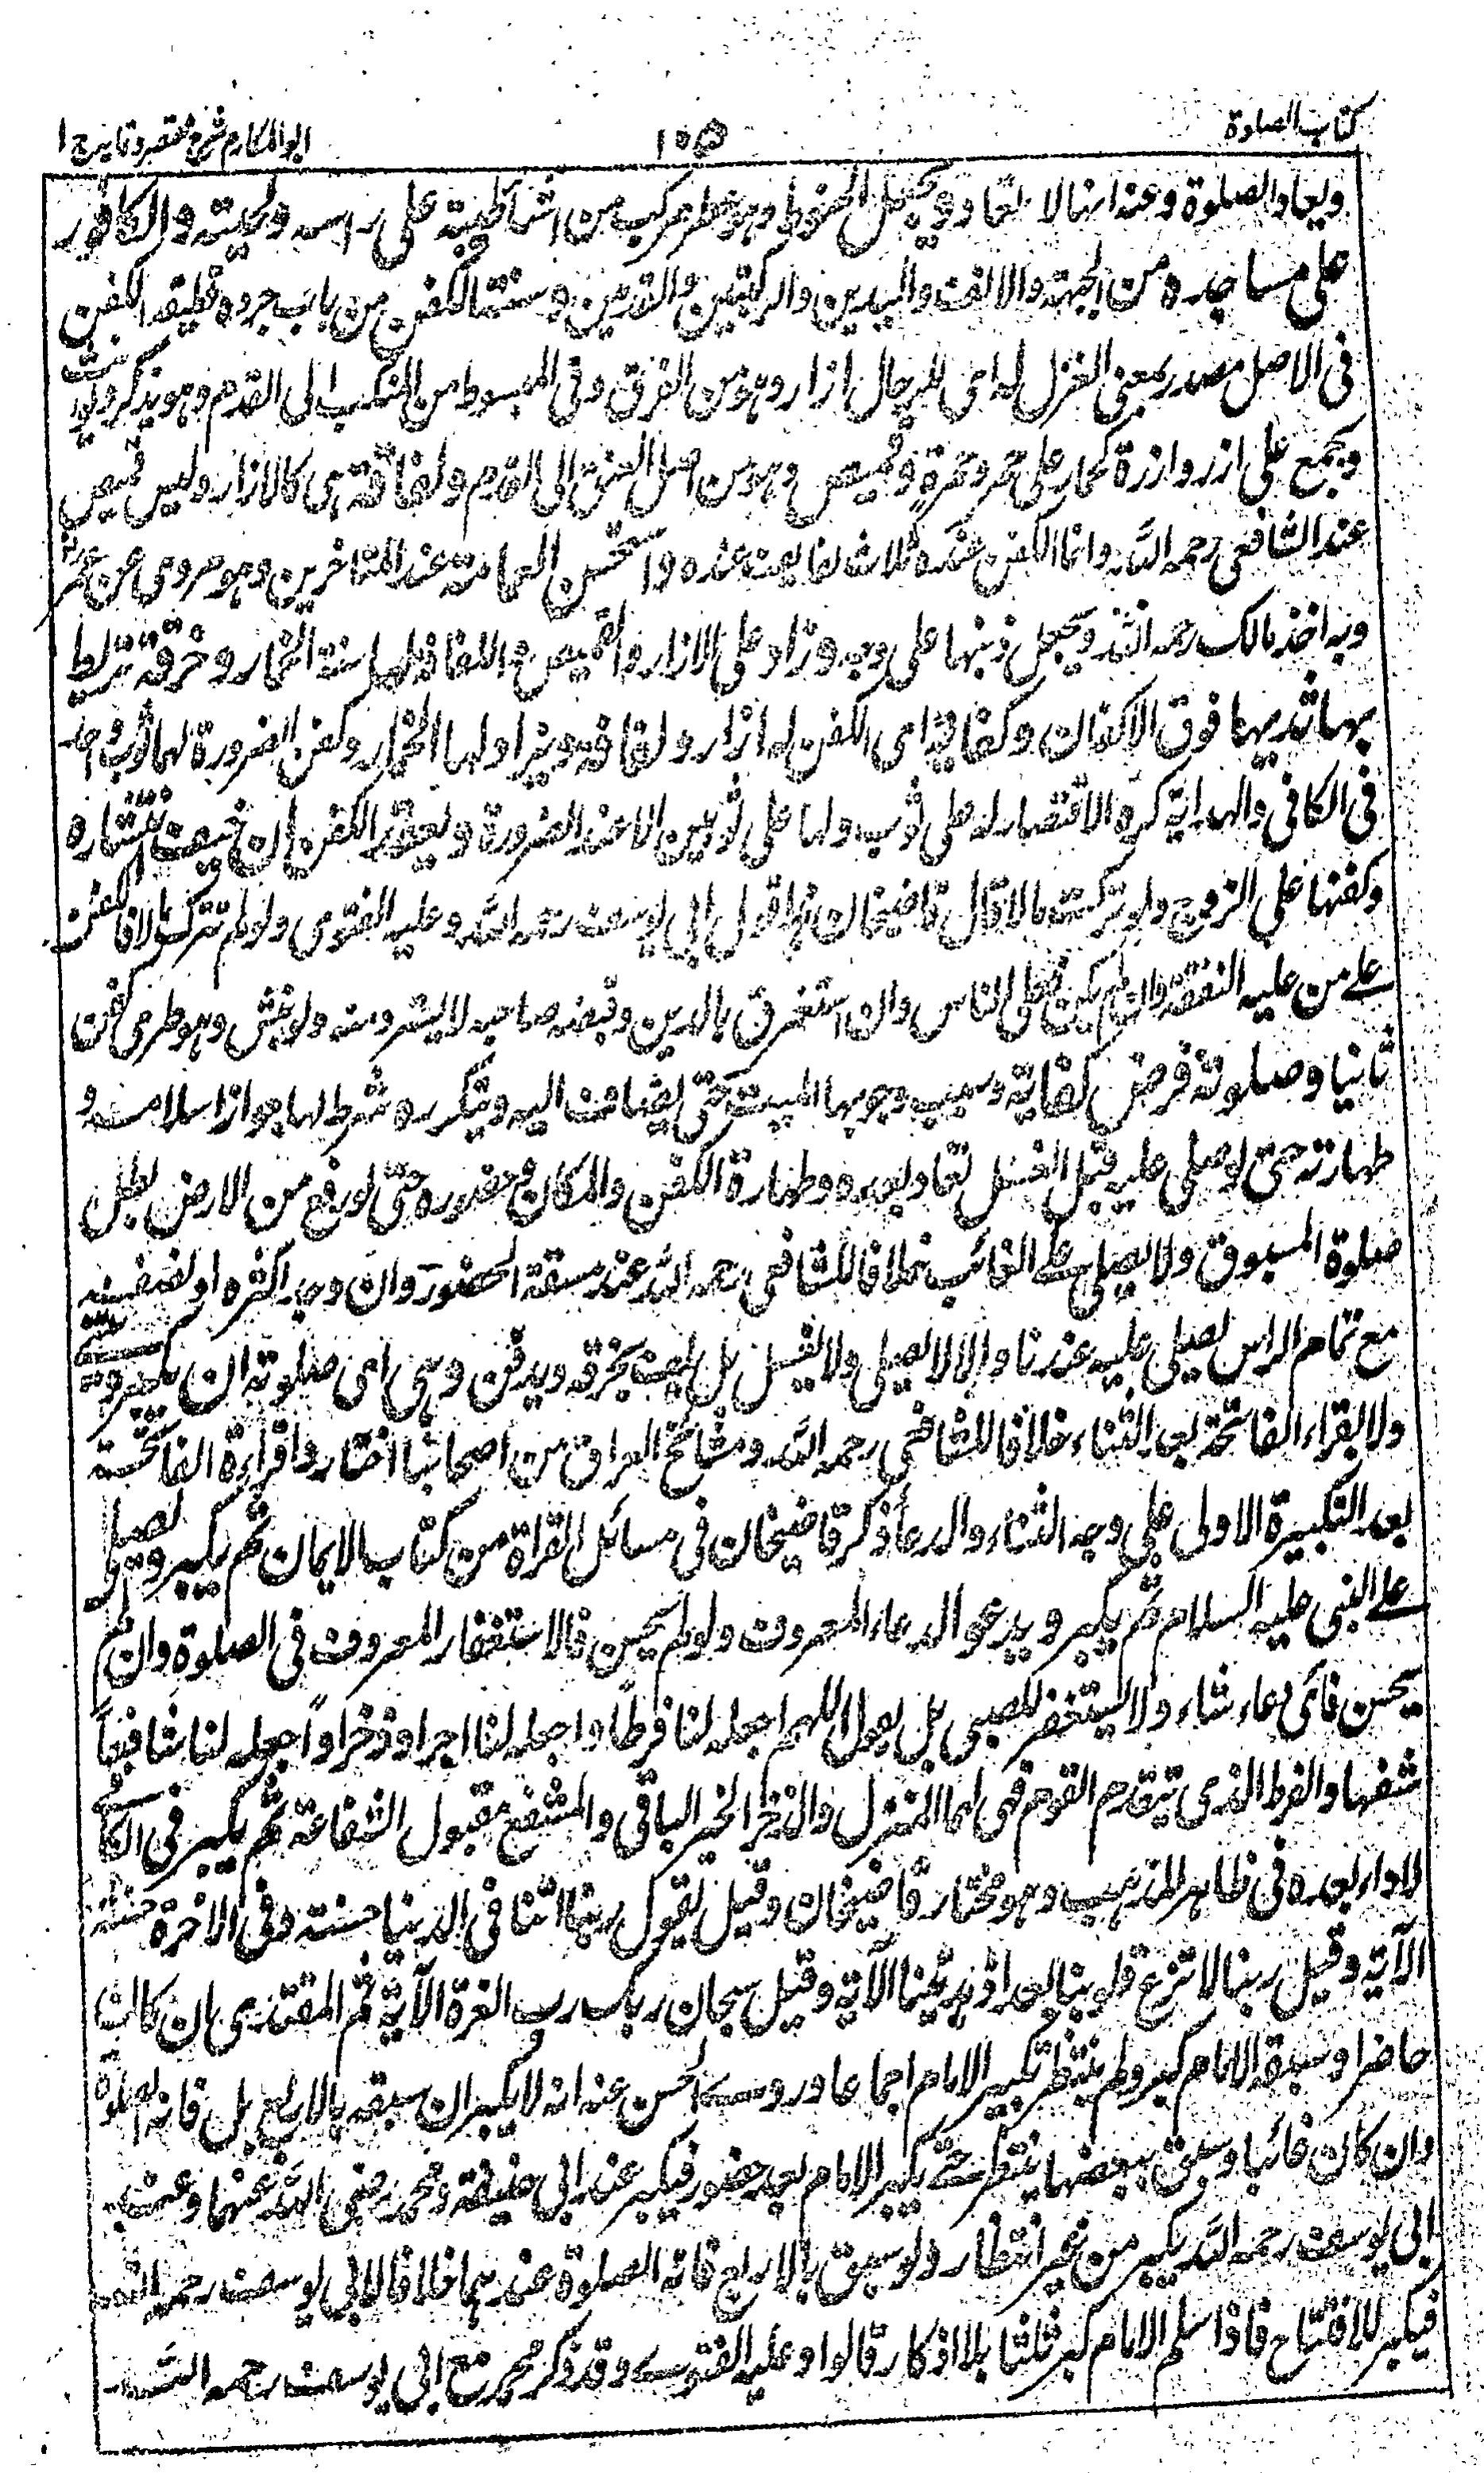 كتاب الصلوة
١٥٥
ابو المكارم شرح مختصر وقايه ج ١
ويعاد الصلوة وعند انها لا تعاد ويجعل الحنوط وهو عطر مركب من اشياء طيبة على راسه ولحيته والكافور
على مساجده من الجبهة والانف واليدين والركبتين والقدمين وسنة الكفن من باب جرد قطيفة الكفن
فى الاصل مصدر بمعنى الغزل له اى للرجال ازار وهو من الفرق وفى المبسوط من المنكب الى القدم وهو يذكر ويونث
ويجمع على ازر وازرة كحمار على حمر وحمرة وقميص وهو من اصل العنق الى القدم ولفافة هى كالازار وليس قميص
عند الشافعى رحمه الله وانما الكفن عنده ثلاث لفايف عنده واستحسن العمامة عند المتاخرين وهو مروى عن عمر
وبه اخذ مالك رحمه الله ويجعل ذنبها على وجه وزاد على الازار والقميص واللفافة لها سنة الخمار وخرقة تربط
بها ثديها فوق الاكفان وكفايته اى الكفن له ازار ولفافة ويزاد لها الخمار وكفن الضرورة لهما ثوب واحد
فى الكافى والهداية كره الاقتصار له على ثوب ولها على ثوبين الا عند الضرورة ويعقد الكفن ان خيف انتشاره
وكفنها على الزوج ولو تركت مالا قال قاضيخان هذا قول ابى يوسف رحمه الله وعليه الفتوى ولو لم تترك مالا فالكفن
على من عليه النفقة وان لم يكن فعلى الناس وان استغرق بالدين وقبضه صاحبه لا يسترد منه ولو نبش وهو طرى كفن
ثانيا وصلوته فرض كفاية وسبب وجوبها الميت حتى يضاف اليه ويتكرر وشرط لها جواز اسلامه و
طهارته حتى لو صلى عليه قبل الغسل تعاد بعده وطهارة الكفن والمكان وحضوره حتى لو رفع من الارض بطل
صلوة المسبوق ولا يصلى على الغائب خلافا للشافعى رحمه الله عند مسقة الحضور وان وجد اكثره او نصفه
مع تمام الراس يصلى عليه عندنا والا لا يصلى ولا يغسل بل يلف بخرقة ويدفن وهى اى صلوته ان يكبر ويثنى
ولا يقراء الفاتحة بعد الثناء خلافا للشافعى رحمه الله ومشائخ العراق من اصحابنا اختاروا قراءة الفاتحة
بعد التكبيرة الاولى على وجه الثناء والدعاء ذكر قاضيخان فى مسائل القراة من كتاب الايمان ثم يكبر ويصلى
على النبى عليه السلام ثم يكبر ويدعو الدعاء المعروف ولو لم يحسن فالاستغفار المعروف فى الصلوة وان لم
يحسن فاى دعاء شاء ولا يستغفر للصبى بل يقول اللهم اجعله لنا فرطا واجعله لنا اجرا وذخرا واجعله لنا شافيعاً
مشفعا والفرط الذى يتقدم القوم فى اما المنزل والذخر الخير الباقى والمشفع مقبول الشفاعة ثم يكبر فى الكافى
لا دعاء بعده فى ظاهر المذهب وهو مختار قاضيخان وقيل يقول ربنا اتنا فى الدنيا حسنة وفى الاخرة حسنة
الآية وقيل ربنا لا تزغ قلوبنا بعد اذ هديتنا الآية وقيل سبحان ربك رب العزة الآية ثم المقتدى ان كان
حاضرا وسبقه الامام كبر ولم ينتظر تكبير الامام اجماعا وروى الحسن عنه انه لا يكبر ان سبقه بالاربع بل فاته الصلوة
وان كان غائبا وسبق ببعضها ينتظر حتى يكبر الامام بعد حضوره فيكبر عند ابى حنيفة ومحمد رضى الله عنهما وعند
ابى يوسف رحمه الله يكبر من غير انتظار ولو سبق بالاربع فاته الصلوة عندهما خلافا لابى يوسف رحمه الله
فيكبر للافتتاح فاذا سلم الامام كبر ثلثا بلا اذكار قالوا وعليه الفتوى وقد ذكر محمد مع ابى يوسف رحمه الله